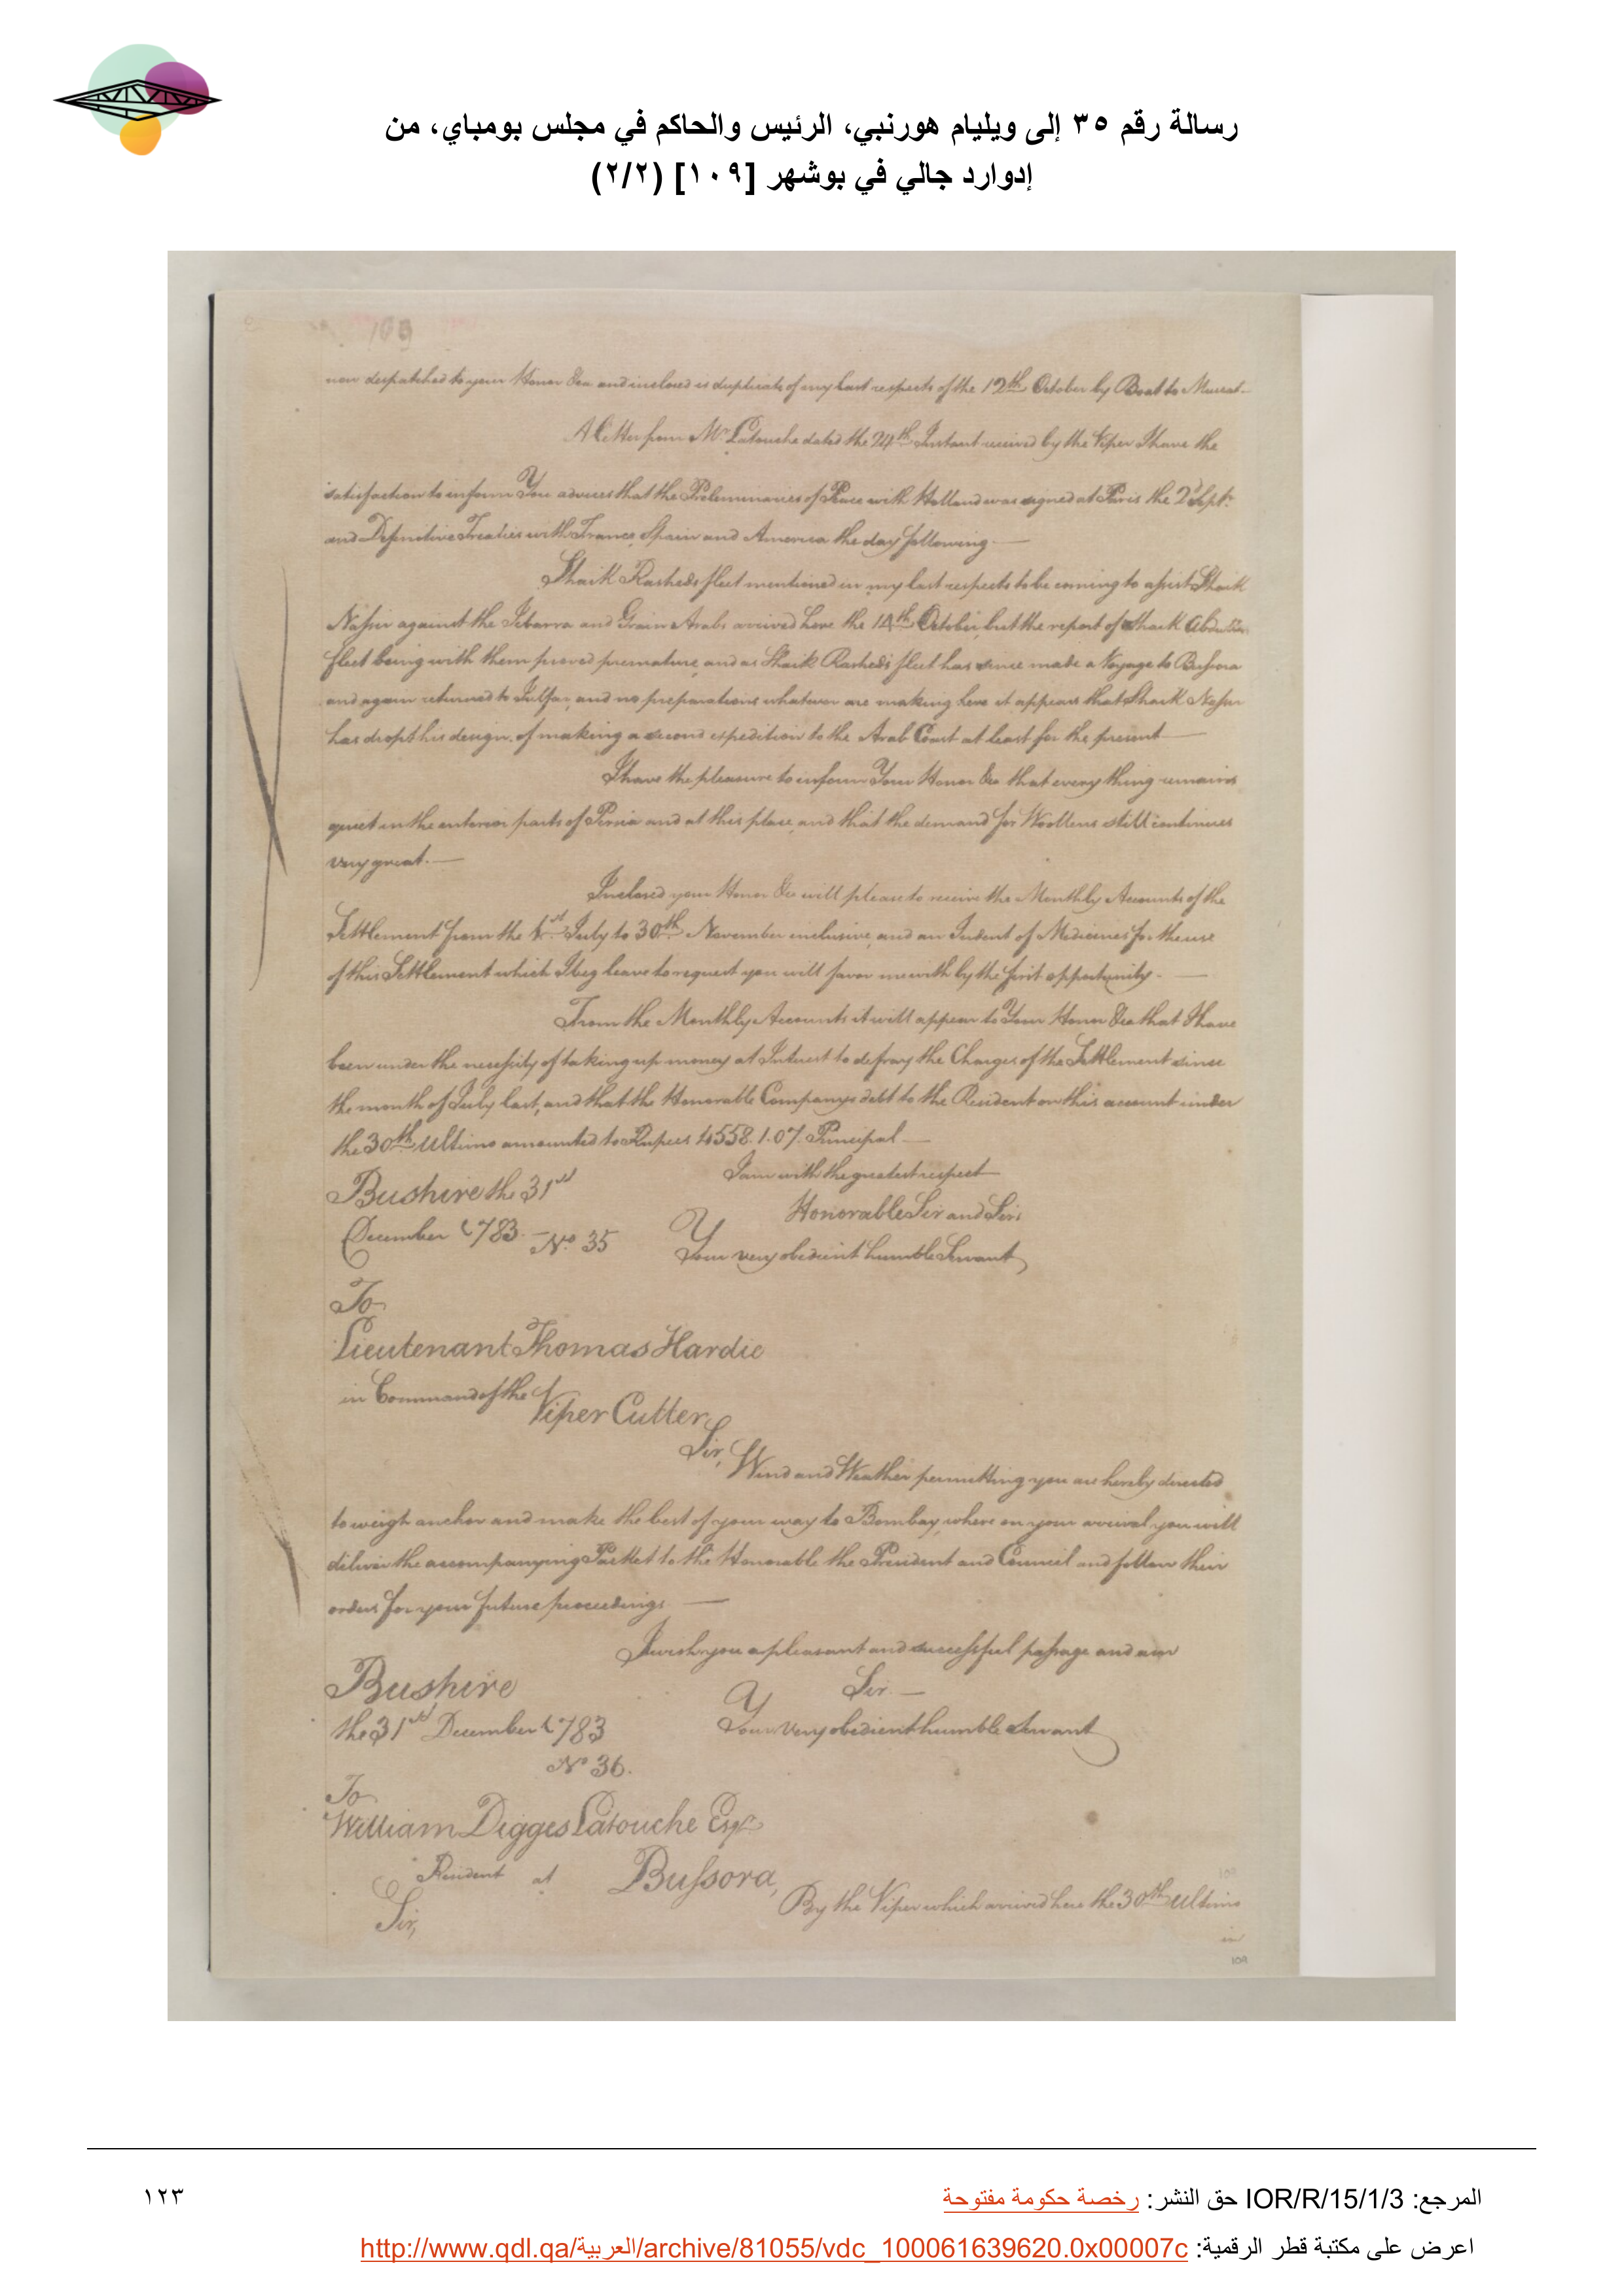 رسالة رقم ٣٥ إلى ويليام هورنبي، الرئيس والحاكم في مجلس بومباي، من
إدوارد جالي في بوشهر [١٠٩] (٢/٢)
109
now despatched to your Honor &ca and inclosed is duplicate of my last respects of the 12th October by Boat to Muscat.
A Letter from Mr Latouche dated the 24th Instant received by the Viper I have the
satisfaction to inform You advices that the Preleminaries of Peace with Holland was signed at Paris the 2d Sept.
and Definitive Treaties with France, Spain and America the day following.
Shaik Rasheds fleet mentioned in my last respects to be coming to assist Shaik
Nassir against the Zebarra and Grain Arabs arrived here the 14th October, but the report of Shaik Abdullas
fleet being with them proved premature, and as Shaik Rasheds fleet has since made a Voyage to Bussora
and again returned to Julfar, and no preparations whatever are making here it appears that Shaik Nassir
has dropt his design of making a second expedition to the Arab Coast at least for the present
I have the pleasure to inform Your Honor &ca that every thing remains
quiet in the interior parts of Persia and at this place, and that the demand for Woollens still continues
very great.
Inclosed your Honor &ca will please to receive the Monthly Accounts of the
Settlement from the 1st July to 30th November inclusive, and an Indent of Medicines for the use
of this Settlement which I beg leave to request you will favor me with by the first opportunity.
From the Monthly Accounts it will appear to Your Honor &ca that I have
been under the necessity of taking up money at Interest to defray the Charges of the Settlement since
the month of July last, and that the Honorable Companys debt to the Resident on this account under
the 30th Ultimo amounted to Rupees 4558.1.07. Principal
I am with the greatest respect
Bushire the 31st
Honorable Sir and Sirs
December 1783. No. 35
Your very obedient humble Servant
To
Lieutenant Thomas Hardie
in Command of the
Viper Cutter
Sir,
Wind and Weather permitting you are hereby directed
to weigh anchor and make the best of your way to Bombay, where on your arrival you will
deliver the accompanying Packet to the Honorable the President and Council and follow their
orders for your future proceedings
I wish you a pleasant and successful passage and am
Bushire
Sir
the 31st December 1783
Your very obedient humble Servant
No 36.
To
William Digges Latouche Esqr
Resident at Bussora,
Sir,
By the Viper which arrived here the 30th Ultimo
109
المرجع: IOR/R/15/1/3 حق النشر: رخصة حكومة مفتوحة
١٢٣
اعرض على مكتبة قطر الرقمية: http://www.qdl.qa/العربية/archive/81055/vdc_100061639620.0x00007c